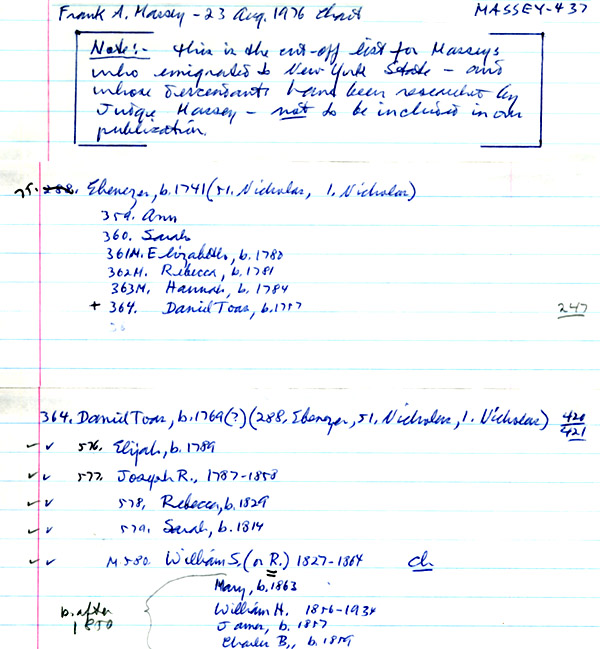 Frank A. Massey - 23 Aug. 1976 chart MASSEY-437
Note:- this is the cut-off list for Masseys
who emigrated to New York State - and
whose descendants have been researched by
Judge Massey - not to be included in our
publication.
75. 288. Ebenezer, b. 1741 (51. Nicholas, 1. Nicholas)
359. Ann
360. Sarah
361M. Elizabeth, b. 1780
362M. Rebecca, b. 1781
363M. Hannah, b. 1784
+ 364. Daniel Toas, b. 1757 247
364. Daniel Toas, b. 1769(?) (288, Ebenezer, 51. Nicholas, 1. Nicholas) 420
421
✓ ✓ 576. Elijah, b. 1789
✓ ✓ 577. Joseph R., 1787-1858
✓ ✓ 578. Rebecca, b. 1829
✓ ✓ 579. Sarah, b. 1814
✓ ✓ M 580. William S. (or R.) 1827-1864 ch
Mary, b. 1863
b. after William H. 1856-1934
1850 James, b. 1857
Charles B., b. 1859